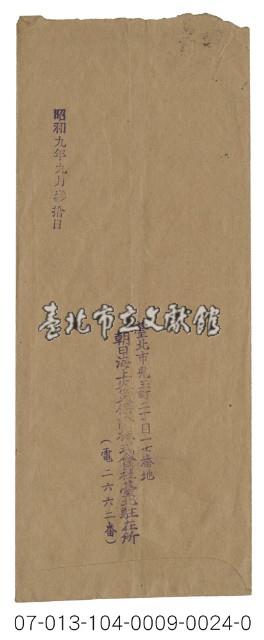 昭和九年九月參拾日
臺北市立文獻館
臺北市兒玉町二丁目一七番地
朝日海上火災保險株式會社臺北駐在所
(電二六六二番)
07-013-104-0009-0024-0